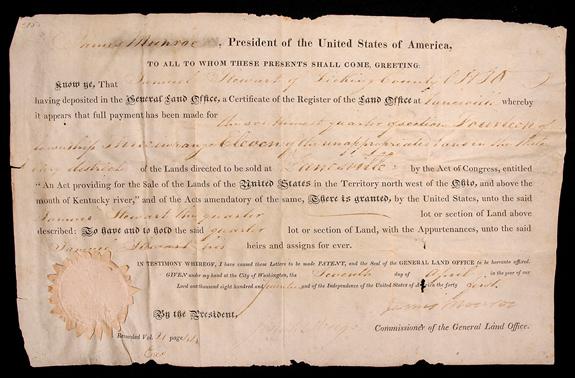 James Monroe, President of the United States of America,
TO ALL TO WHOM THESE PRESENTS SHALL COME, GREETING:
Know ye, That Samuel Stewart of Licking County Ohio
having deposited in the General Land Office, a Certificate of the Register of the Land Office at Zanesville whereby
it appears that full payment has been made for the quarter of section fourteen of
township in range Eleven of the unappropriated lands in the
district of the Lands directed to be sold at Zanesville by the Act of Congress, entitled
"An Act providing for the Sale of the Lands of the United States in the Territory north west of the Ohio, and above the
mouth of Kentucky river," and of the Acts amendatory of the same, There is granted, by the United States, unto the said
Samuel Stewart the quarter lot or section of Land above
described: To have and to hold the said quarter lot or section of Land, with the Appurtenances, unto the said
Samuel Stewart his heirs and assigns for ever.
IN TESTIMONY WHEREOF, I have caused these Letters to be made PATENT, and the Seal of the GENERAL LAND OFFICE to be hereunto affixed.
GIVEN under my hand at the City of Washington, the Seventh day of April in the year of our
Lord one thousand eight hundred and and of the Independence of the United States of America the forty
By the President, James Monroe
Commissioner of the General Land Office.
Recorded Vol. page